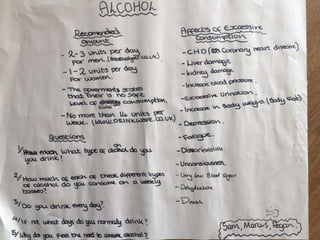 ALCOHOL
Recomended
amount
- 2-3 units per day
for men. 
- 1-2 units per day
for women.
- The goverments stated
that their is no safe
level of consumption
- No more than 14 units per
week. (www.DRINKWARE.co.uk)
Questions
1/ What type of alcohol do
you drink?
2/ How much of each of these different types
of alcohol do you consume on a weekly
basses?
3/ Do you drink every day?
4/ If not what days do you normally drink?
5/ Why do you feel the need to consume alcohol?
Affects of Excessive
Consumption
- CHD (OR Coronary heart disease)
- Liver damage
- kidney damage
- Increase blood pressure
- Excessive Urination
- Increase in Body weight (Body Fat)
- Depression
- Fatigue
- Disorientation
- Unconsiousness
- Very Low Blood Sugar
- Dehydration
- Death
Sam, Marcus, Regan.